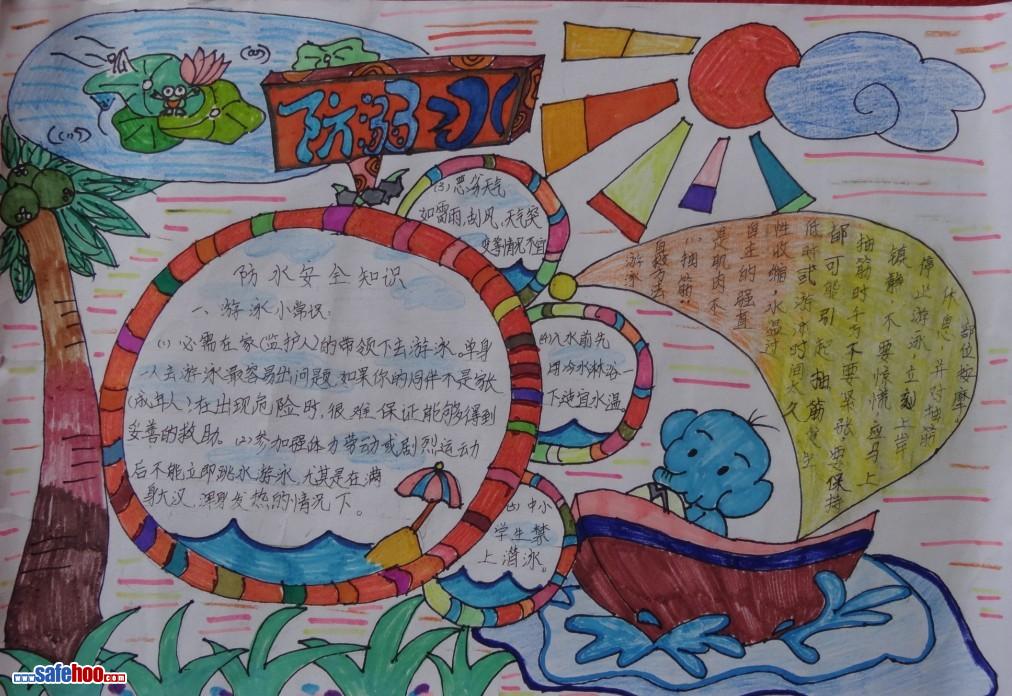 防溺水
防水安全知识
一、游泳小常识:
(1)必需在家(监护人)的带领下去游泳。单身
一人去游泳最容易出问题,如果你的同伴不是家长
(成年人)在出现危险时,很难保证能够得到
妥善的救助。(2)参加强体力劳动或剧烈运动
后不能立即跳水游泳,尤其是在满
身大汉,浑身发热的情况下。
(3)恶劣天气
如雷雨,刮风,天气突
变等情况不宜
(4)入水前先
用冷水淋浴一
下适宜水温。
(5)中小
学生禁
上游泳。
游泳
急救方法
抽筋:
是肌肉不
自主的强直
性收缩,水温过
低时或游泳时间太久
都可能引起抽筋发生
抽筋时千万不要紧张要保持
镇静,不要惊慌应马上
停止游泳,立刻上岸
休息,并对抽筋
部位按摩。
www.safehoo.com